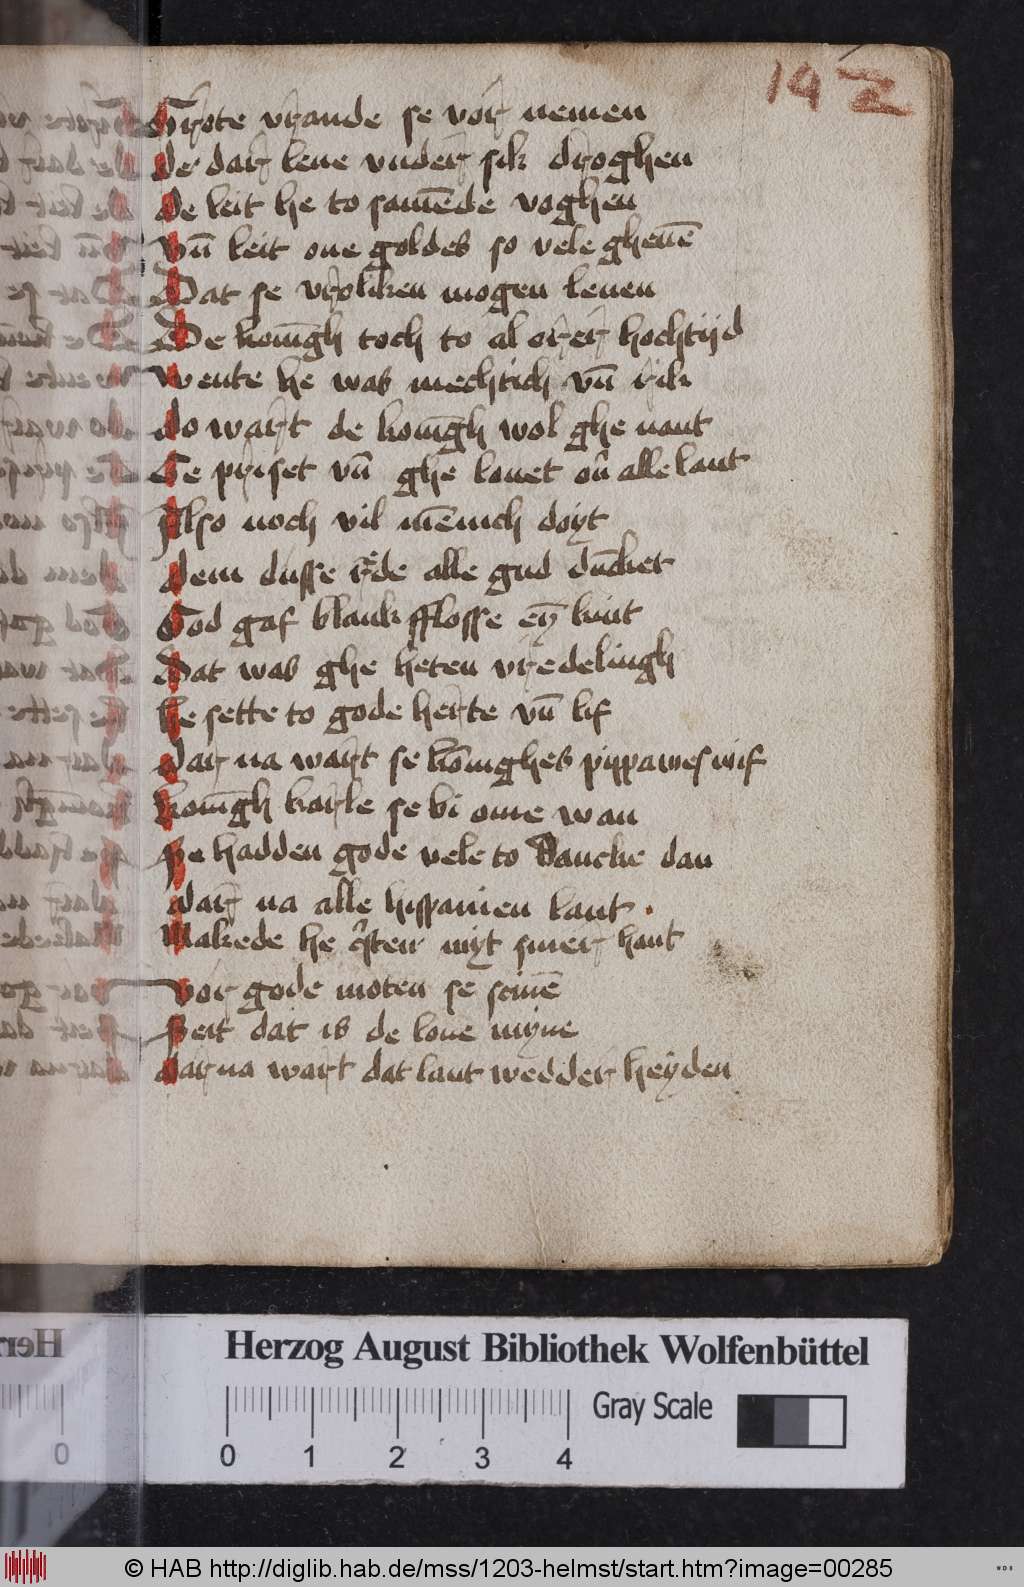 142
Grote vrande se vor nemen
de dar leue vnder sik droghen
de leit he to samēde voghen
vn̄ leit one goldes so vele gheuē
Dat se vroliken mogen leuen
De konīgh toch to al orer hochtijd
wente he was mechtich vn̄ rik
do wart de konīgh wol ghe nant
Ge priset vn̄ ghe louet ou̅ alle lant
Also noch vil mēnich doyt
dem dusse rede alle gud dūcket
God gaf blank fflosse eȳ kint
Dat was ghe heten vredelingh
he sette to gode herte vn̄ lif
dar na wart se kōnighes pippawes wif
konīgh karle se bi ome wan
se hadden gode vele to dancke dan
dar na alle hispanien lant
Makede he cʳsten myt siner hant
vor gode moten se scinē
Seit dat is de loue myne
darna wart dat lant wedder heyden
Herzog August Bibliothek Wolfenbüttel
Gray Scale
0 1 2 3 4
© HAB http://diglib.hab.de/mss/1203-helmst/start.htm?image=00285